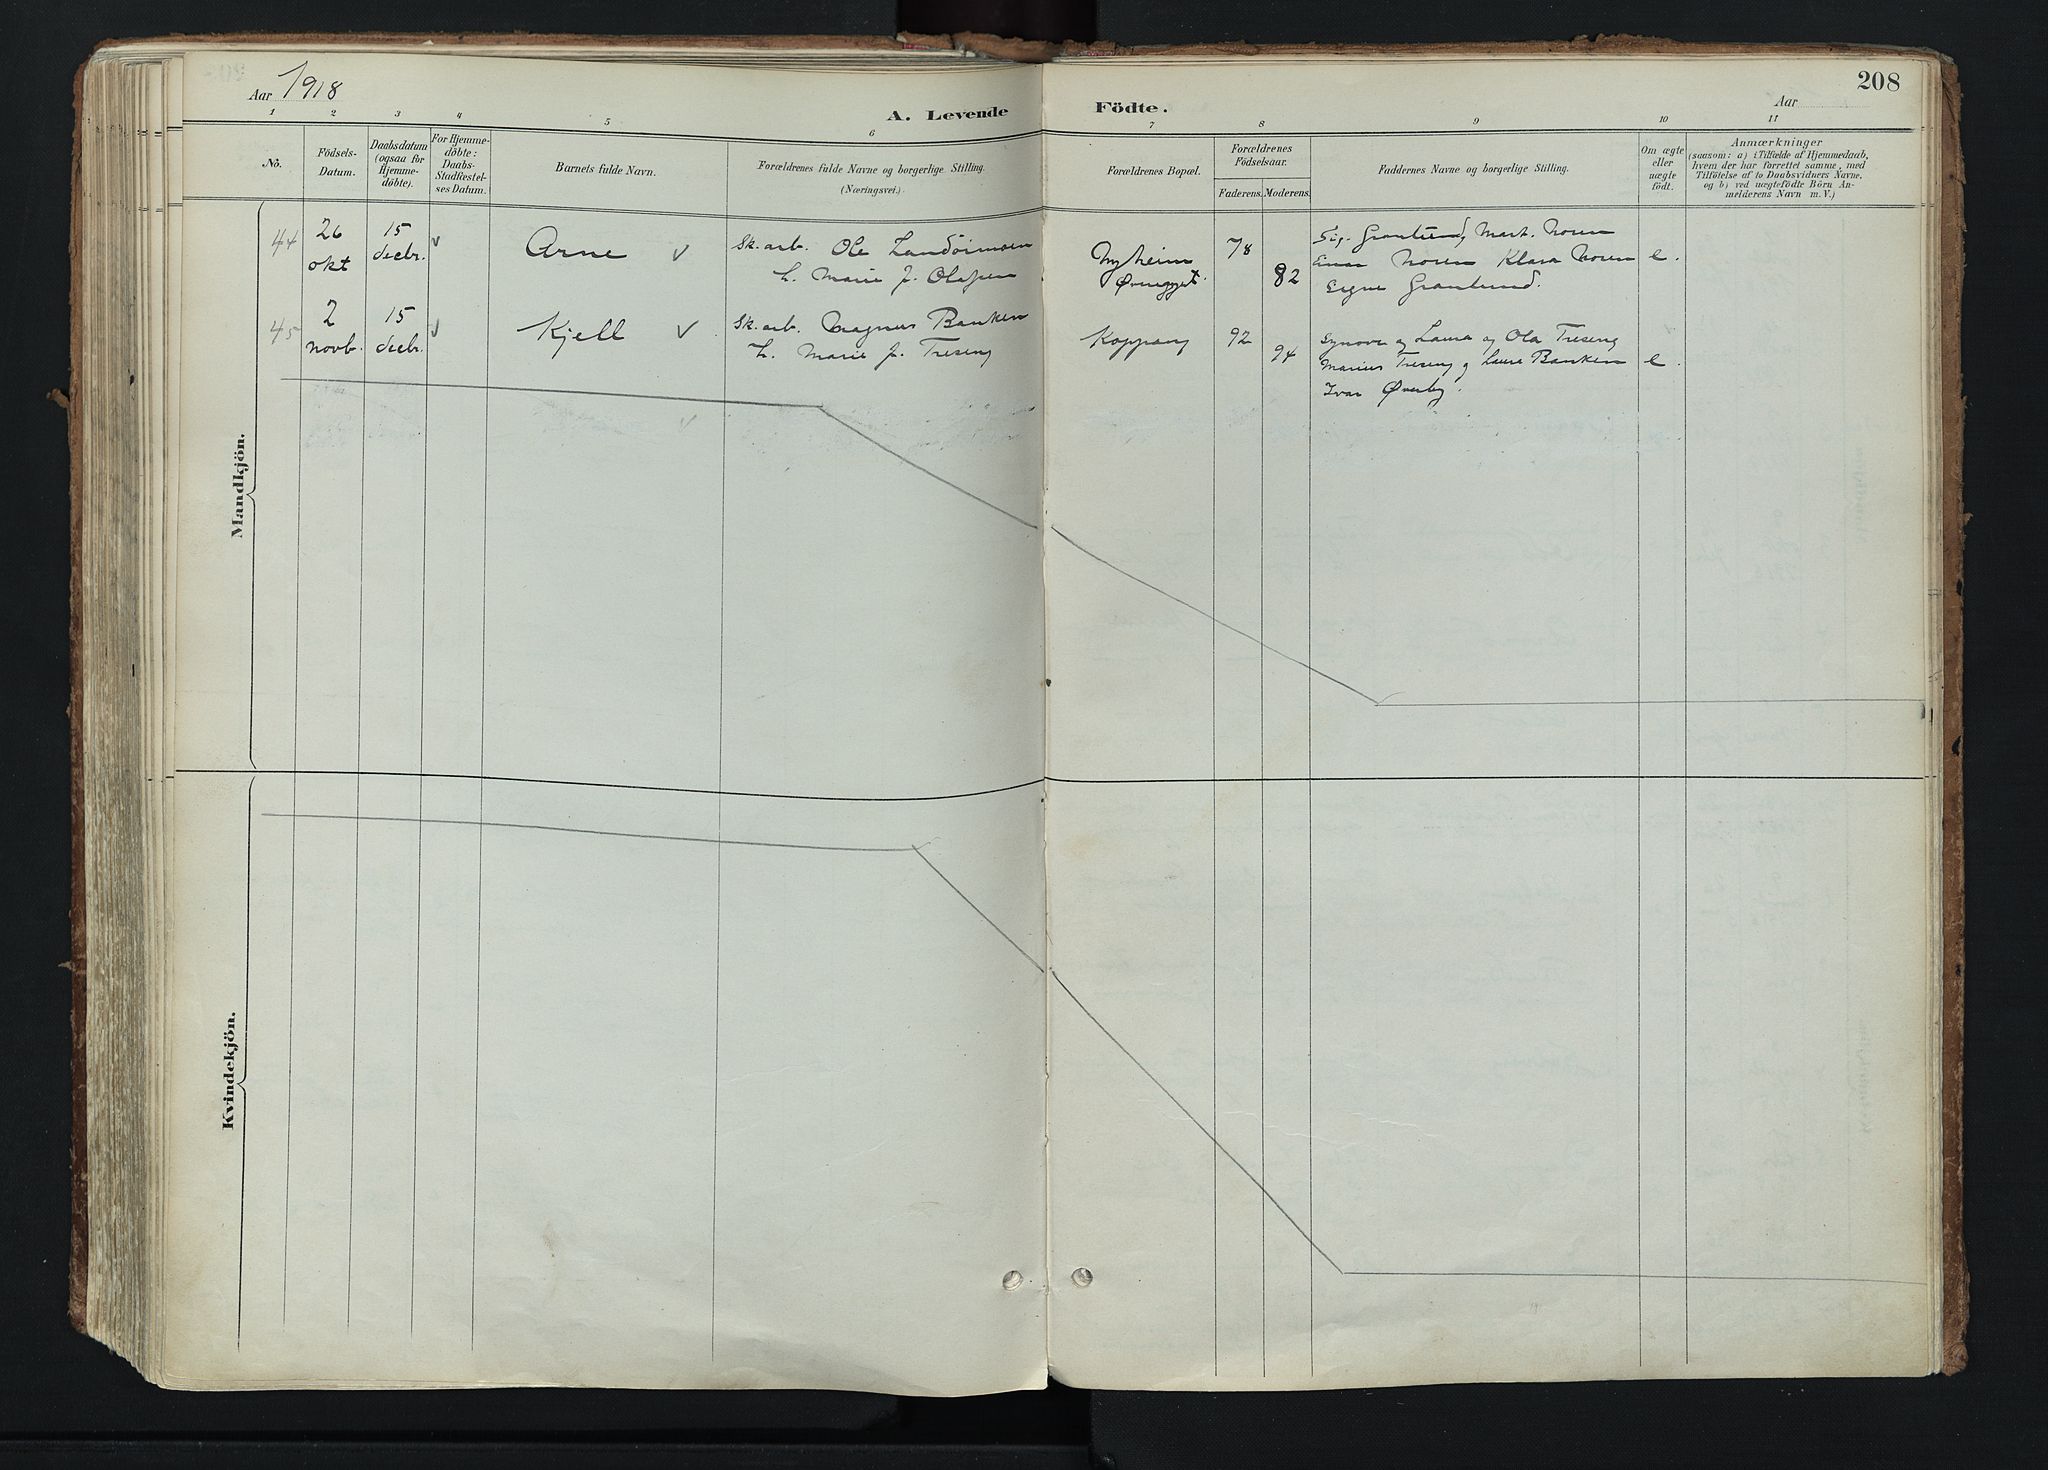 Aar 1918
A. Levende Födte.
Aar
208
1 2 3 4 5 6 7 8 9 10 11
No.
Födsels-
Datum.
Daabsdatum
(ogsaa for
Hjemme-
döbte).
For Hjemme-
döbte:
Daabs-
Stadfæstel-
ses Datum.
Barnets fulde Navn.
Forældrenes fulde Navne og borgerlige Stilling.
(Næringsvei.)
Forældrenes Bopæl.
Forældrenes
Födselsaar.
Faderens. Moderens.
Faddernes Navne og borgerlige Stilling.
Om ægte
eller
uægte
födt.
Anmærkninger
(saasom: a) i Tilfælde af Hjemmedaab,
hvem der har forrettet samme, med
Tilföielse af to Daabsvidners Navne,
og b) ved uægtefödte Börn An-
melderens Navn m. V.)
Mandkjön.
44 26 15 v Arne v Sk. arb. Ole
okt decbr. h. Marie f. Olafsen
Nyheim 78 Sig. Granlund, Mart. Noren
82 Einar Noren Klara Noren e.
Signe Granlund.
45 2 15 v Kjell v Sk. arb. Magnus Banken
novb. decbr. h. Marie f. Treseng
Koppang 92 Synove og Laura og Ola Treseng
94 Marius Treseng og Laura Banken e.
Ivar Øverby.
Kvindekjön.